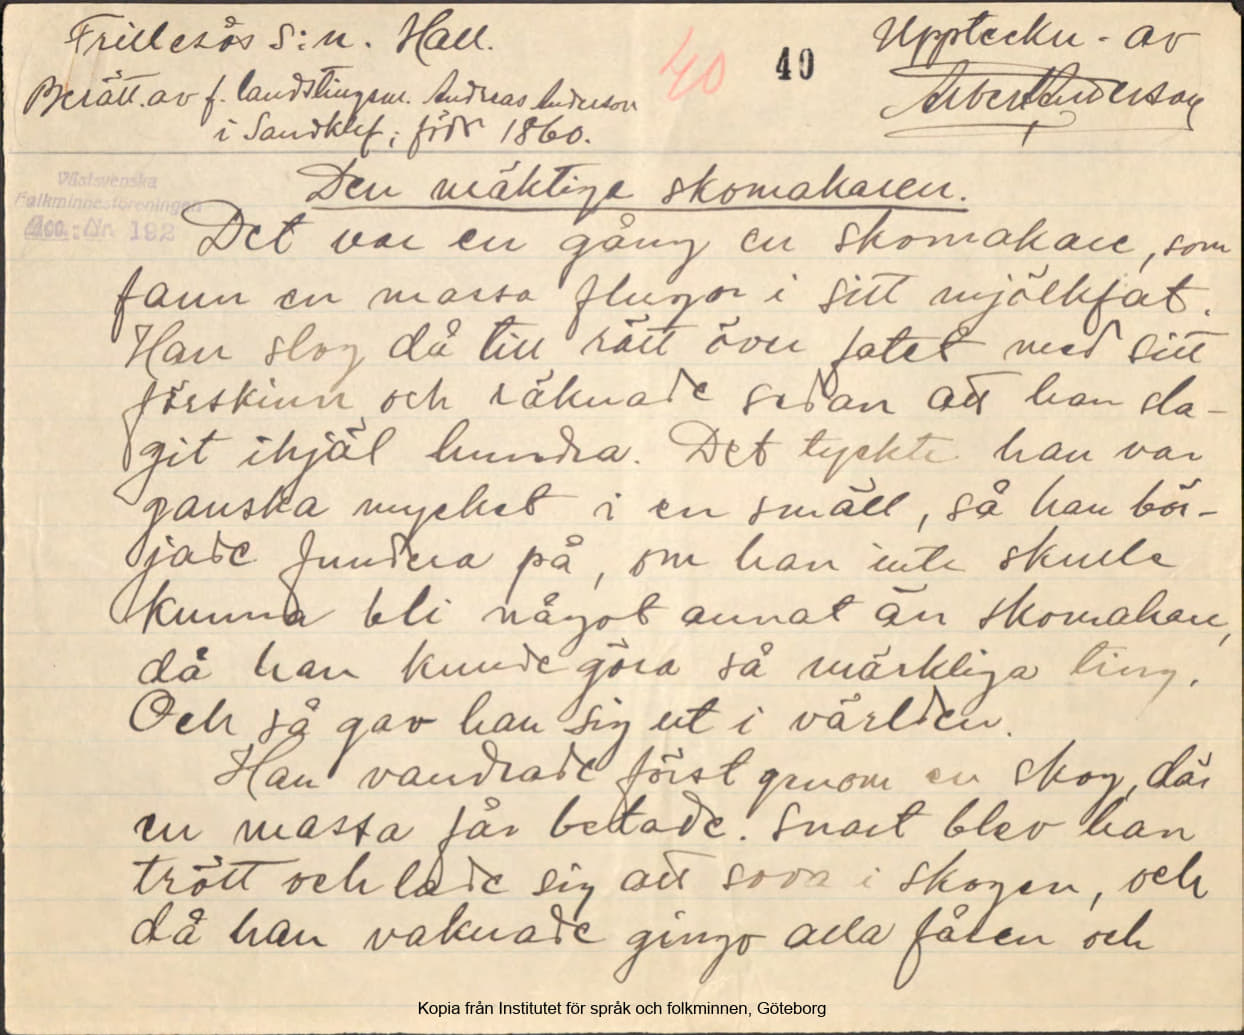 Frillesås S:n. Hall.
Uppteckn. av
40
40
Berätt. av f. landstingsm. Andreas Anderson
i Sandklef; född 1860.
Albert Anderson
Västsvenska
Folkminnesföreningen
Acc. Nr. 192
Den mäktige skomakaren.
Det var en gång en skomakare, som
fann en massa flugor i sitt mjölkfat.
Han slog då till rätt över fatet med sitt
förskinn och räknade sedan att han sla-
git ihjäl hundra. Det tyckte han var
ganska mycket i en smäll, så han bör-
jade fundera på, om han inte skulle
kunna bli något annat än skomakare,
då han kunde göra så märkliga ting.
Och så gav han sig ut i världen.
Han vandrade först genom en skog, där
en massa får betade. Snart blev han
trött och lade sig att sova i skogen, och
då han vaknade gingo alla fåren och
Kopia från Institutet för språk och folkminnen, Göteborg